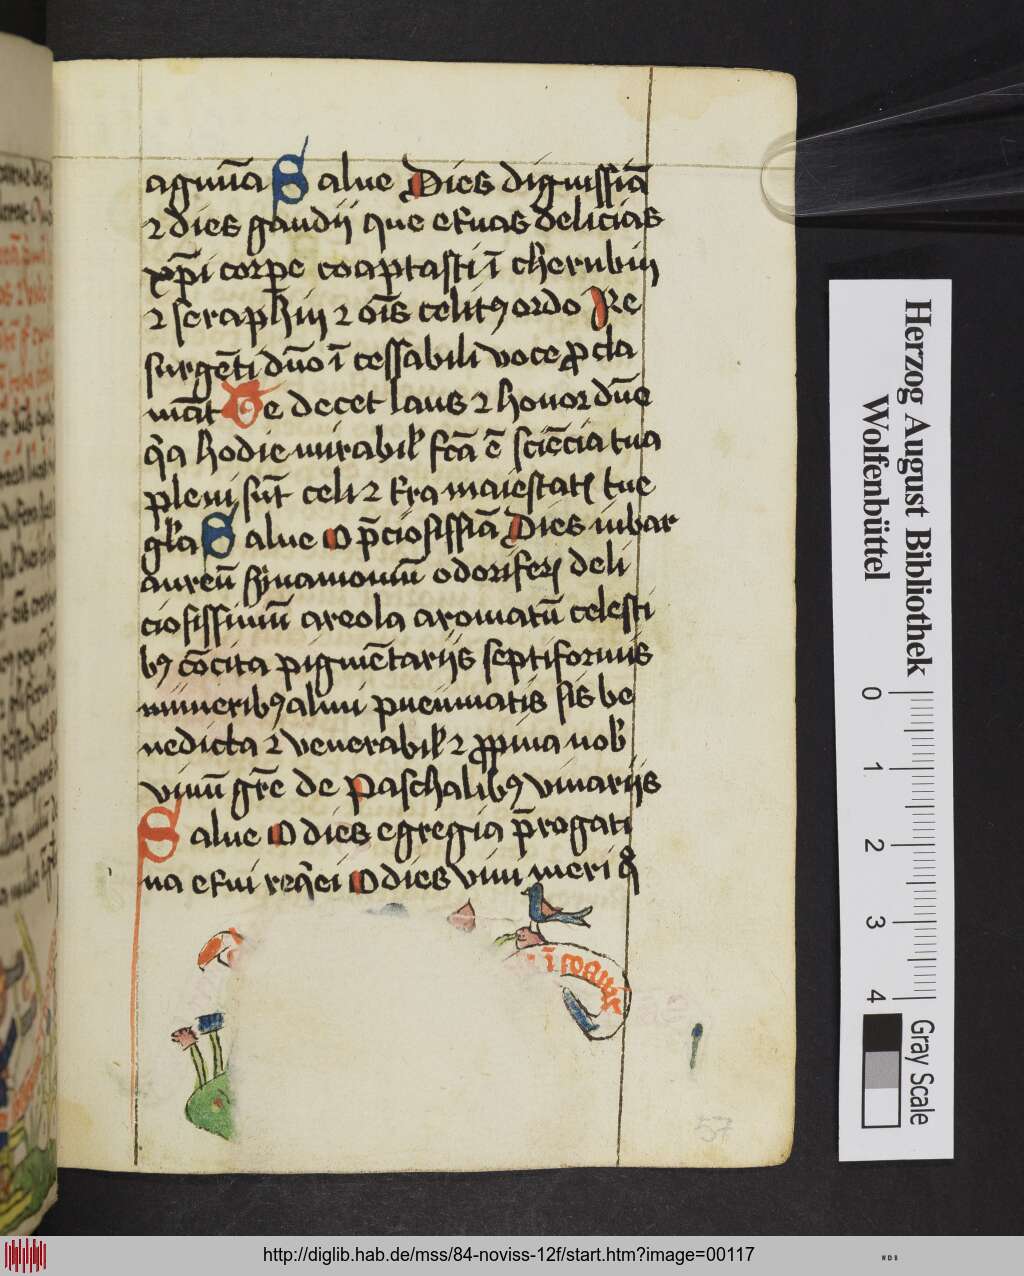 agmīa Salue Dies dignissiā
⁊ dies gaudij que et̾nas delicias
xp̄i corꝑe coaptasti ī cherubin
⁊ seraphin ⁊ oīs celitꝰ ordo Re
surgēti dn̄o ī cessabili voce ꝓcla
māt Te decet laus ⁊ honor dn̄e
q̄a hodie mirabil̕ fc̄a ē sciēcia tua
pleni sūt celi ⁊ t̾ra maiestatꝭ tue
gl̕a Salue O p̄ciosissiā Dies iubar
aureū sÿnamomū odoriferꝭ deli
ciosissimū areola aromatū celesti
bꝰ cōcita pigmētarijs septiformis
mūneribꝰ almi pneumatis sis be
nedicta ⁊ venerabil̕ ⁊ ꝓpina nob̕
vinū gr̄e de Paschalibꝰ vinarijs
Salue O dies egregia p̄rogati
ua et̾ni req̄ei O dies vini meri q̄
57
Herzog August Bibliothek
Wolfenbüttel
0 1 2 3 4
Gray Scale
http://diglib.hab.de/mss/84-noviss-12f/start.htm?image=00117